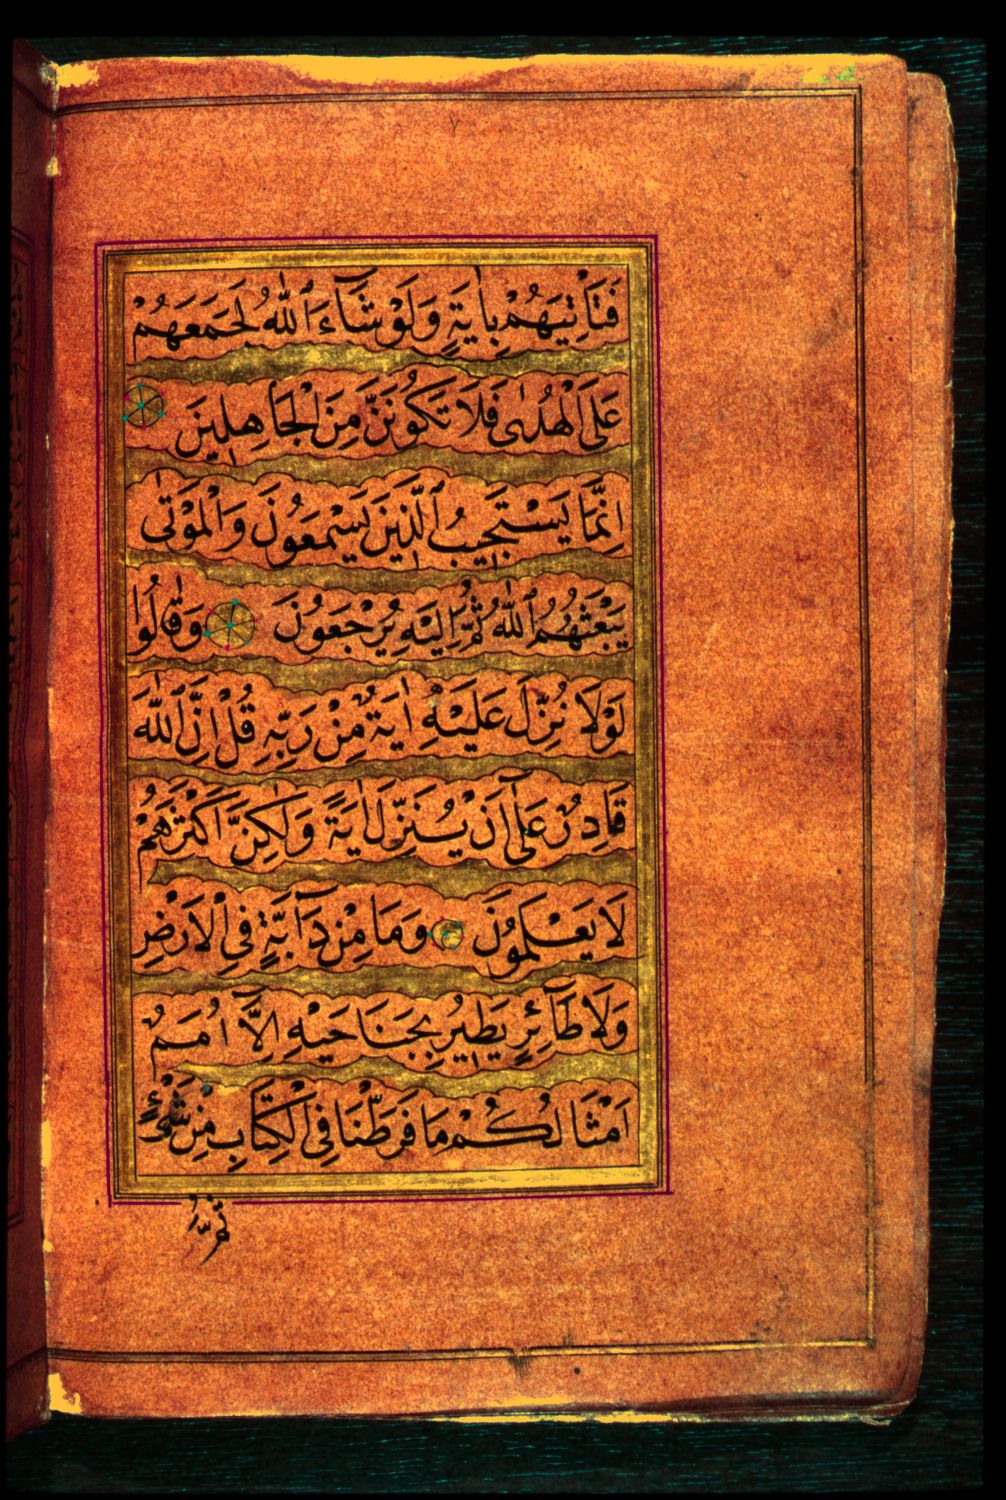 فَتَأْتِيَهُمْ بِاٰيَةٍ وَلَوْ شَآءَ ٱللّٰهُ لَجَمَعَهُمْ
عَلَى الْهُدٰى فَلَا تَكُونَنَّ مِنَ الْجَاهِلِينَ
اِنَّمَا يَسْتَجِيبُ ٱلَّذِينَ يَسْمَعُونَ وَالْمَوْتٰى
يَبْعَثُهُمُ ٱللّٰهُ ثُمَّ اِلَيْهِ يُرْجَعُونَ وَقَالُوا
لَوْلَا نُزِّلَ عَلَيْهِ اٰيَةٌ مِنْ رَبِّهِ قُلْ اِنَّ ٱللّٰهَ
قَادِرٌ عَلٰٓى اَنْ يُنَزِّلَ اٰيَةً وَلٰكِنَّ اَكْثَرَهُمْ
لَا يَعْلَمُونَ وَمَا مِنْ دَآبَّةٍ فِى الْاَرْضِ
وَلَا طَآئِرٍ يَطِيرُ بِجَنَاحَيْهِ اِلَّآ اُمَمٌ
اَمْثَالُكُمْ مَا فَرَّطْنَا فِى الْكِتَابِ مِنْ شَىْءٍ
ثُمَّ